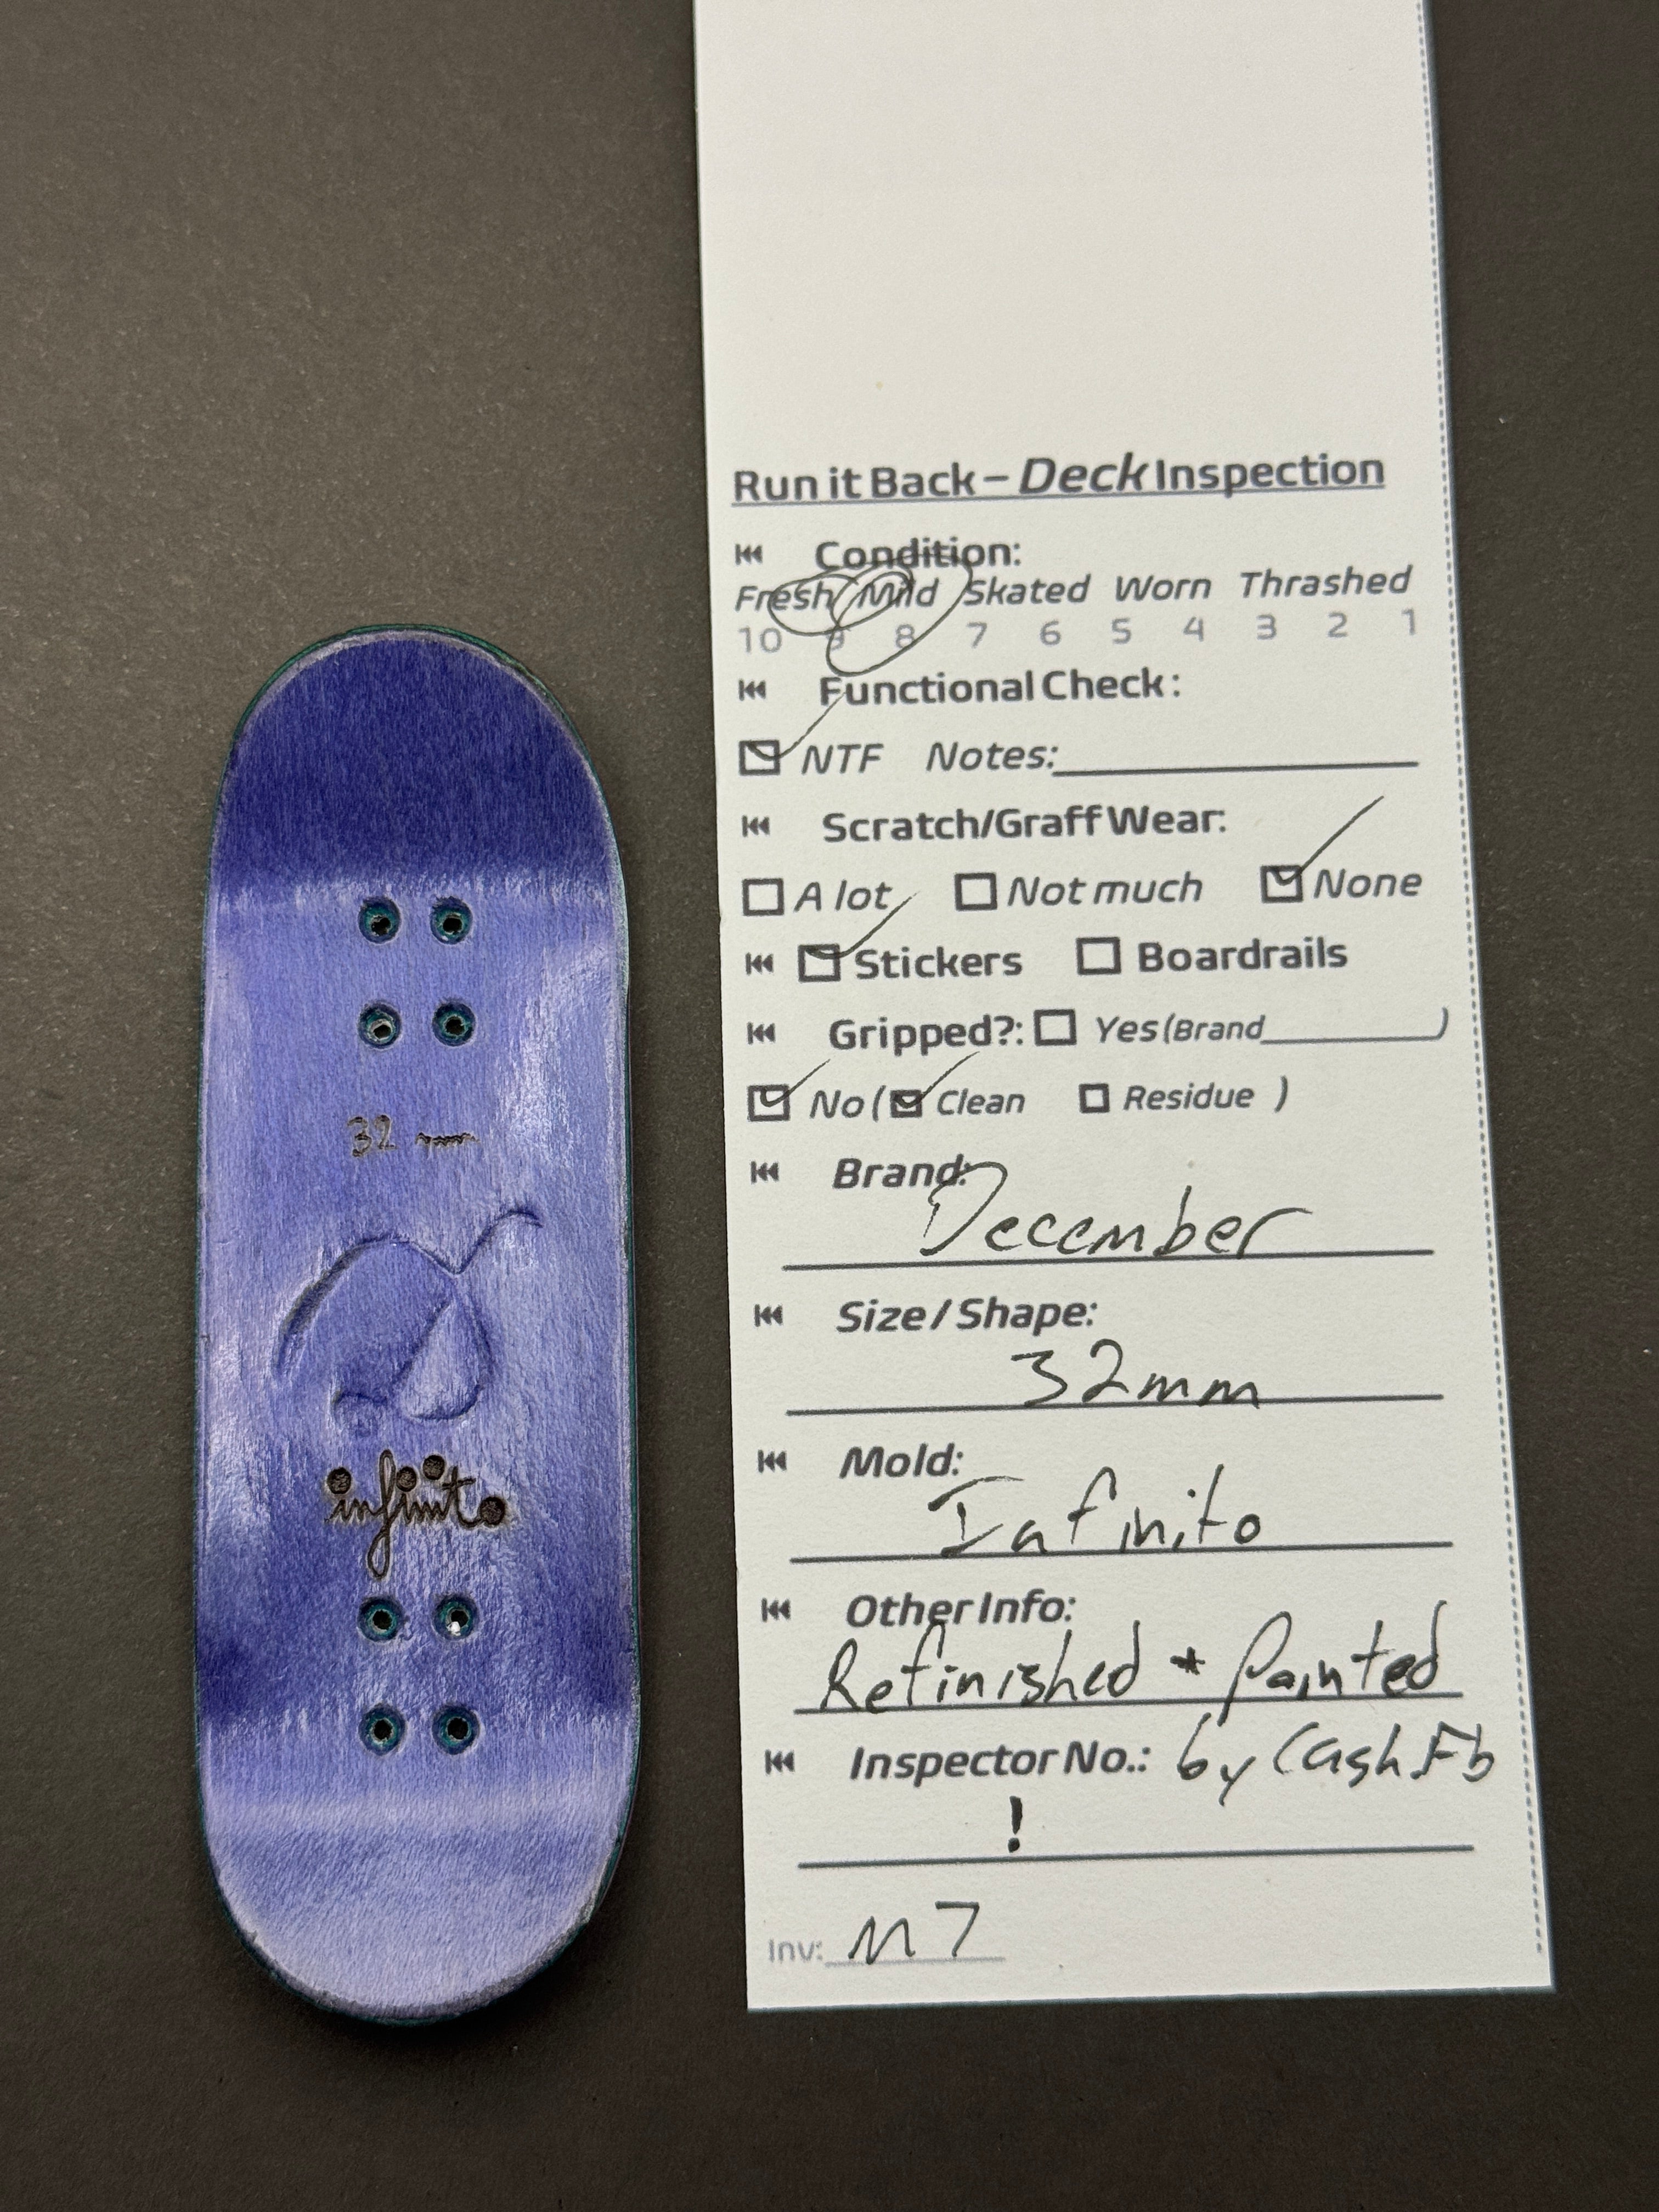 32 mm
infinito
Run it Back – Deck Inspection
Condition:
Fresh Mild Skated Worn Thrashed
10 9 8 7 6 5 4 3 2 1
Functional Check:
NTF Notes:
Scratch/Graff Wear:
A lot Not much None
Stickers Boardrails
Gripped?: Yes (Brand )
No ( Clean Residue )
Brand:
December
Size / Shape:
32mm
Mold:
Infinito
Other Info:
Refinished + Painted
Inspector No.: by Cash.Fb
!
Inv: M7